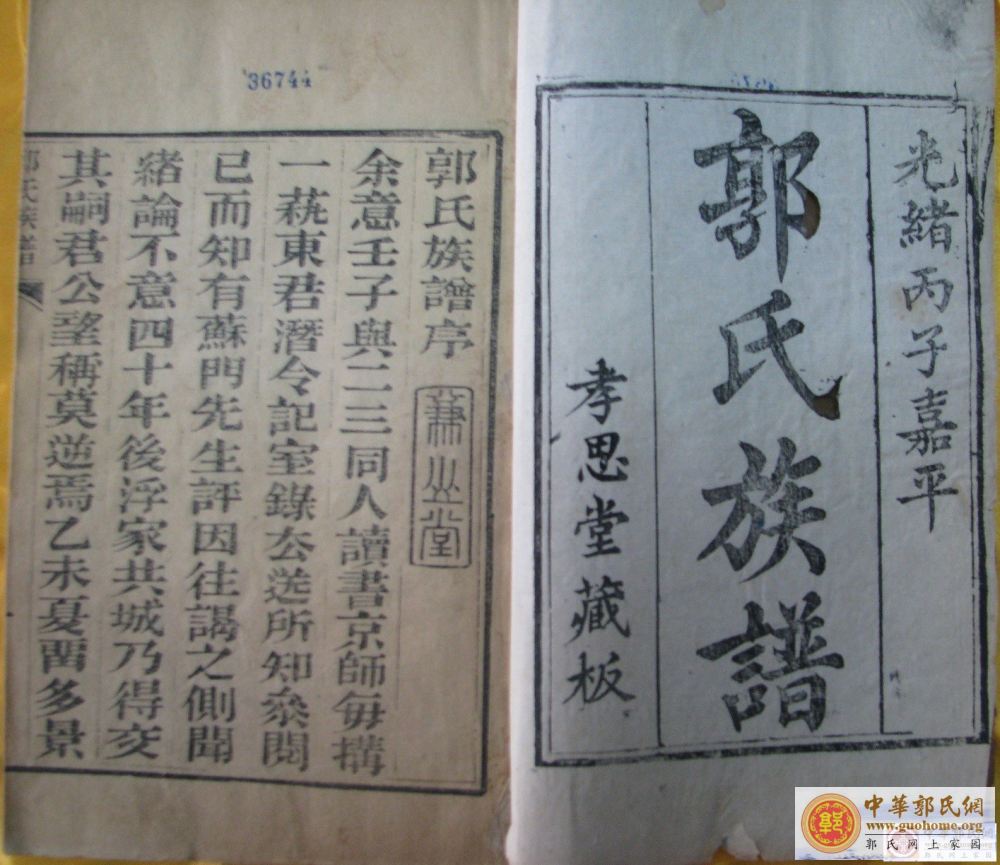 光緒丙子嘉平
郭氏族譜
孝思堂藏板
36744
郭氏族譜序
兼山堂
余意壬子與二三同人讀書京師每搆
一蓺東君潛令記室錄厺送所知叅閱
已而知有蘇門先生評因往謁之側聞
緒論不意四十年後浮家共城乃得交
其嗣君公望稱莫逆焉乙未夏畱多景
郭氏族譜
中華郭氏網
www.guohome.org
郭氏网上家园